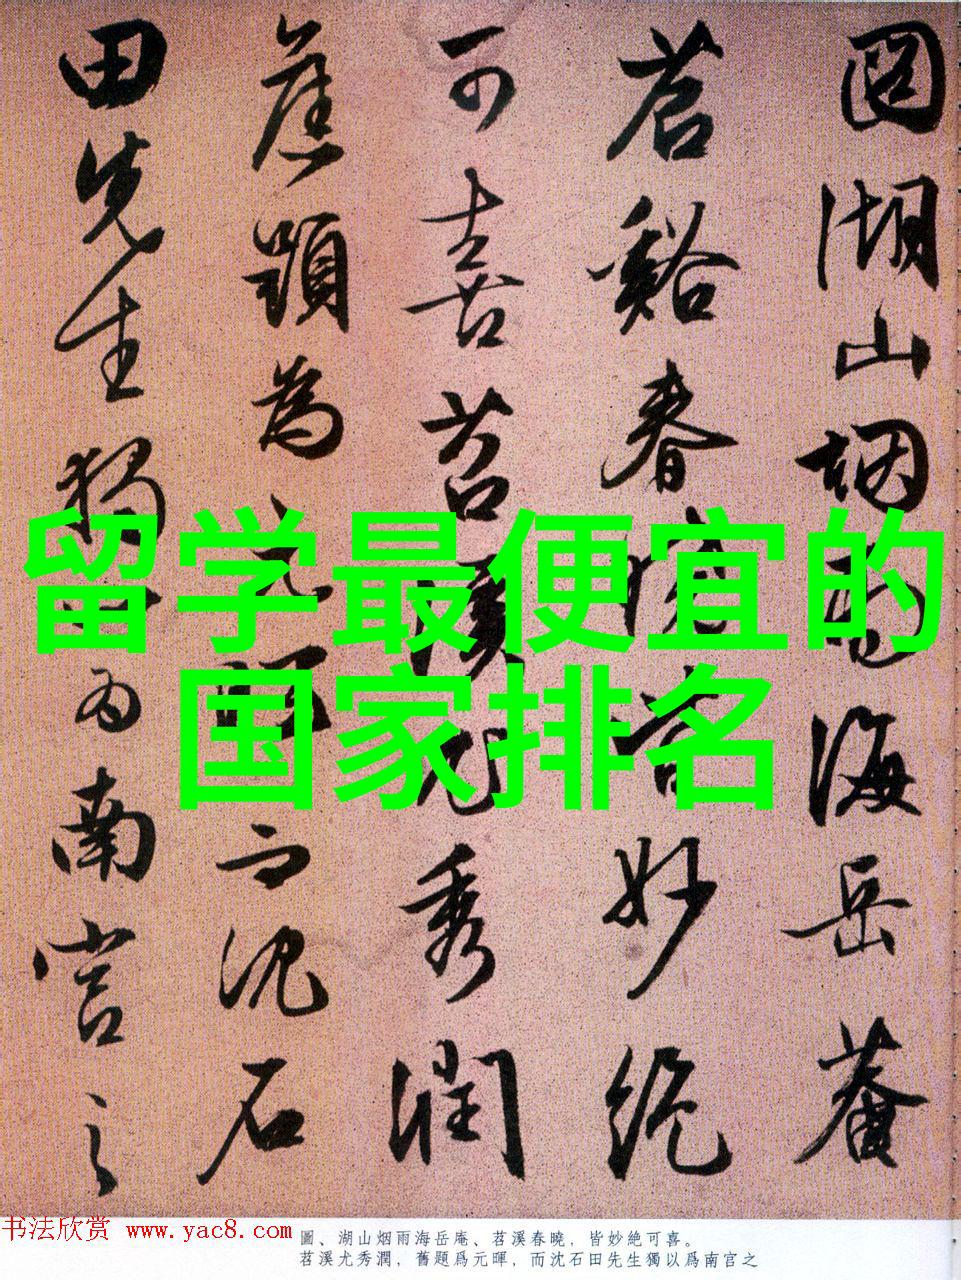 圖湖山烟雨海岳菴
苕谿春曉皆妙絶
可喜苕溪尤秀潤
舊題為元暉而沈石
田先生獨以為南宫之
留学最便宜的
国家排名
书法欣赏 www.yac8.com
圖、湖山烟雨海岳庵、苕溪春曉，皆妙絶可喜。
苕溪尤秀潤，舊題爲元暉，而沈石田先生獨以爲南宫之